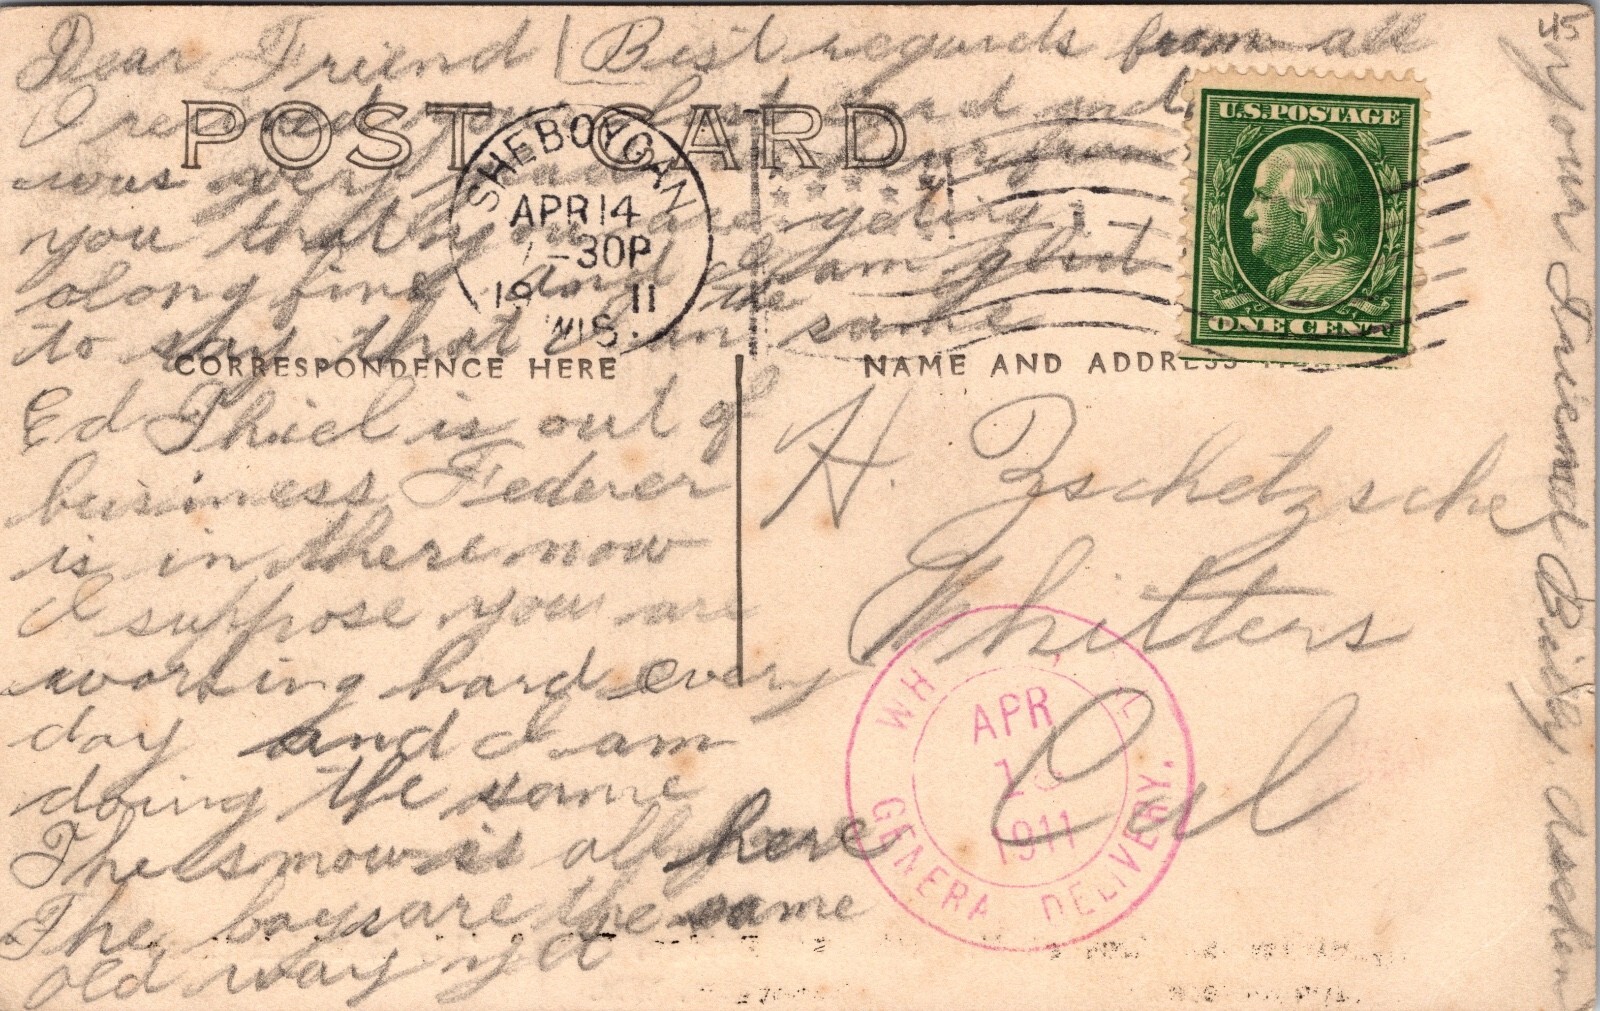 Dear Friend
Best regards from all
I received your post card and
was very glad to hear from
you that you are geting
along fine and I am glad
to say that I am the same
Ed Thiel is out of
business Federer
is in there now
I suppose you are
working hard every
day and I am
doing the same
The snow is all here
The boys are the same
old way yet
your Friend Billy Aschen
45
POST CARD
CORRESPONDENCE HERE
NAME AND ADDRESS
SHEBOYGAN
APR 14
-30P
19 11
WIS.
U.S. POSTAGE
ONE CENT
H. Zschetzsche
Whitters
Cal
WH
APR
1911
GENERAL DELIVERY.